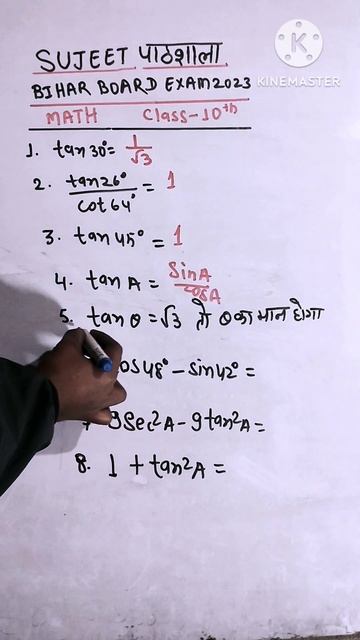 SUJEET पाठशाला
BIHAR BOARD EXAM 2023
KINEMASTER
MATH Class-10th
1. tan30°= 1/√3
2. tan26°/cot64° = 1
3. tan45° = 1
4. tanA = SinA/cosA
5. tanθ = √3 तो θ का मान होगा
cos48° - sin42° =
9Sec²A - 9tan²A =
8. 1 + tan²A =